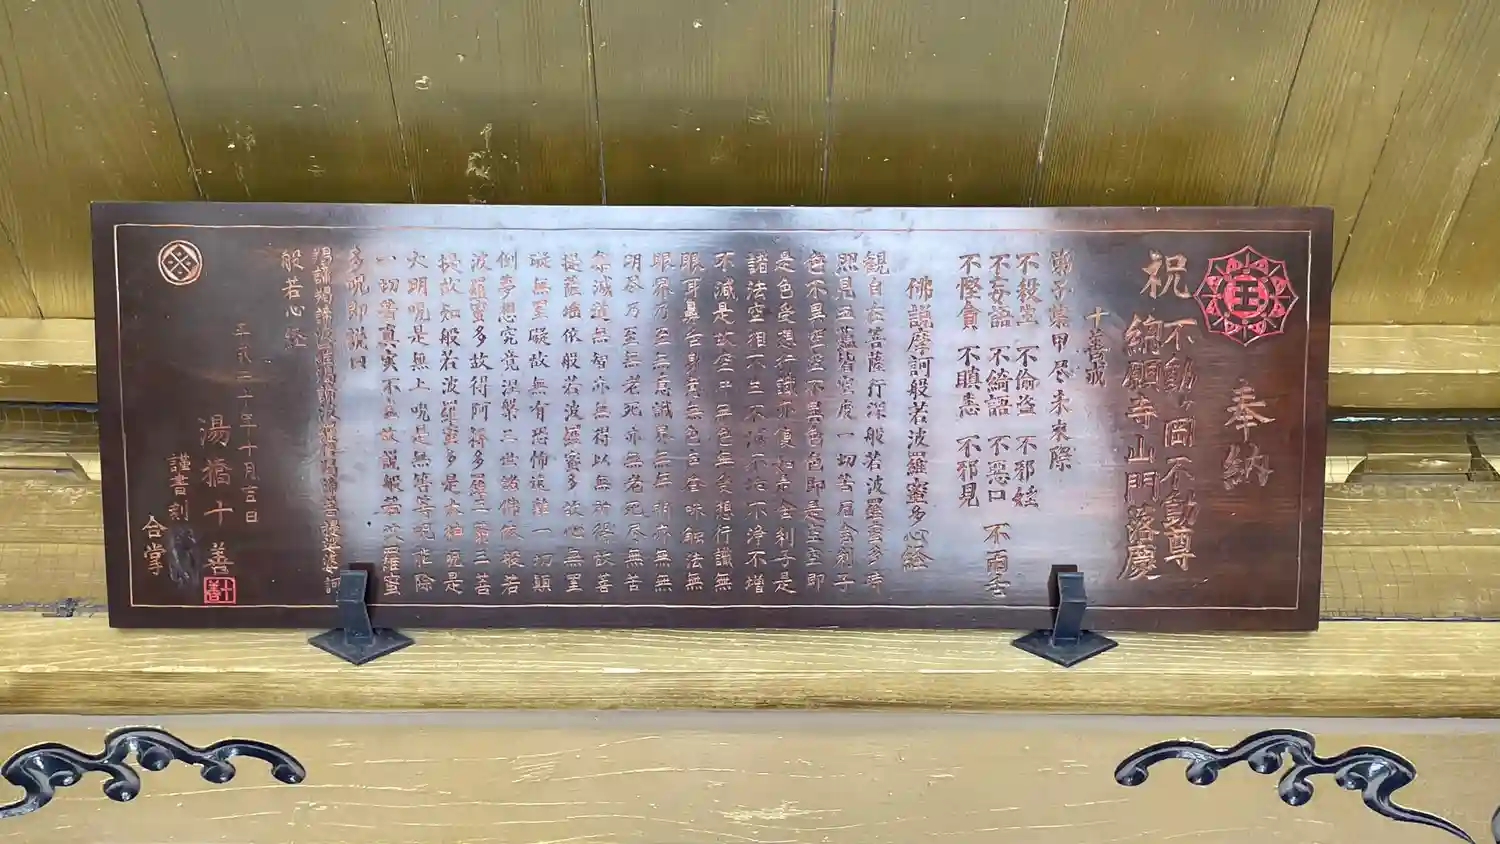 奉納
祝 不動ヶ岡不動尊
總願寺山門落慶
十善戒
弟子某甲尽未来際
不殺生 不偸盗 不邪婬
不妄語 不綺語 不悪口 不両舌
不慳貪 不瞋恚 不邪見
佛説摩訶般若波羅蜜多心経
観自在菩薩行深般若波羅蜜多時
照見五蘊皆空度一切苦厄舎利子
色不異空空不異色色即是空空即
是色受想行識亦復如是舎利子是
諸法空相不生不滅不垢不浄不増
不減是故空中無色無受想行識無
眼耳鼻舌身意無色声香味触法無
眼界乃至無意識界無無明亦無無
明尽乃至無老死亦無老死尽無苦
集滅道無智亦無得以無所得故菩
提薩埵依般若波羅蜜多故心無罣
礙無罣礙故無有恐怖遠離一切顛
倒夢想究竟涅槃三世諸佛依般若
波羅蜜多故得阿耨多羅三藐三菩
提故知般若波羅蜜多是大神呪是
大明呪是無上呪是無等等呪能除
一切苦真実不虚故説般若波羅蜜
多呪即説曰
羯諦羯諦波羅羯諦波羅僧羯諦菩提娑婆訶
般若心経
平成二十年十月吉日
湯橋十善
十善
謹書刻
合掌